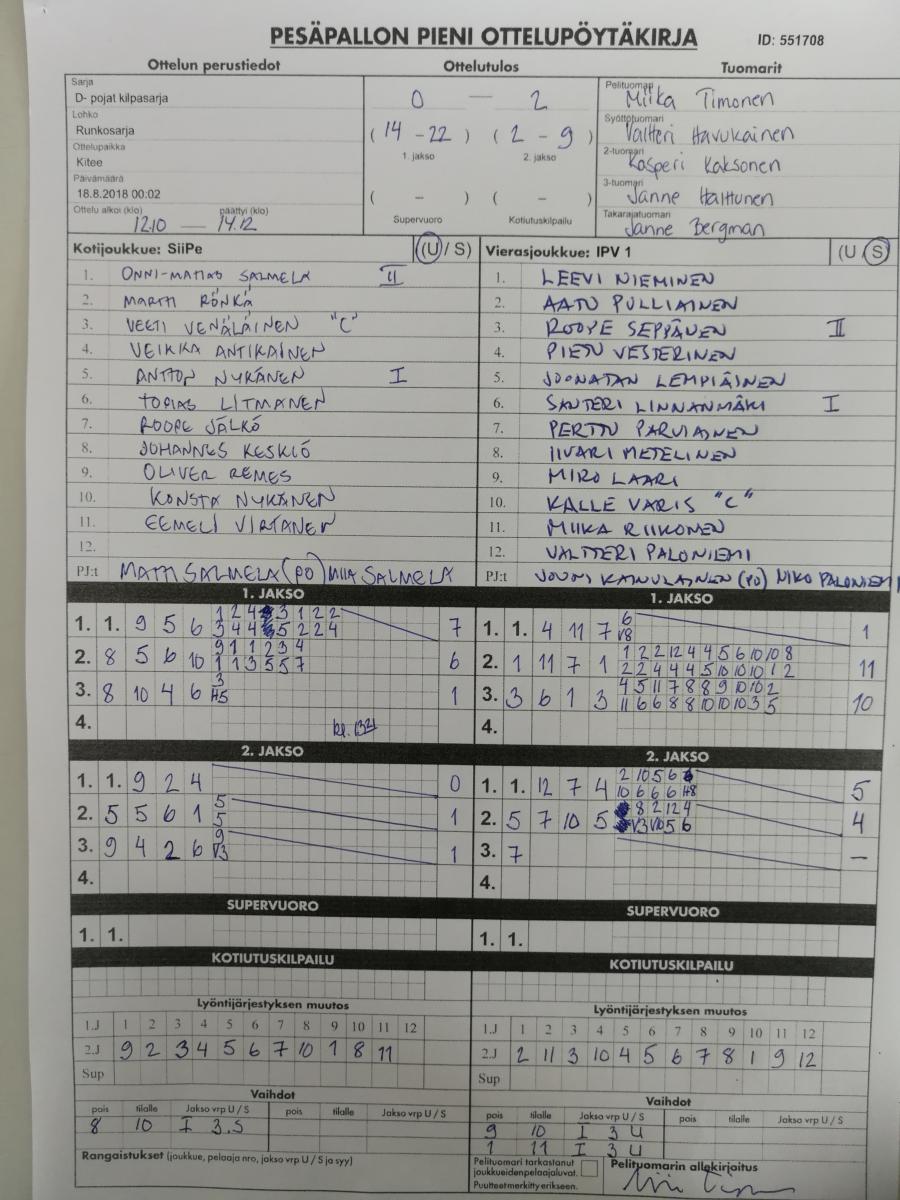 PESÄPALLON PIENI OTTELUPÖYTÄKIRJA ID: 551708
Ottelun perustiedot
Sarja
D- pojat kilpasarja
Lohko
Runkosarja
Ottelupaikka
Kitee
Päivämäärä
18.8.2018 00:02
Ottelu alkoi (klo) päättyi (klo)
12.10 — 14.12
Ottelutulos
0 — 2
( 14 - 22 ) ( 2 - 9 )
1. jakso 2. jakso
( - ) ( - )
Supervuoro Kotiutuskilpailu
Tuomarit
Pelituomari
Miika Timonen
Syöttötuomari
Valtteri Havukainen
2-tuomari
Kasperi Kaksonen
3-tuomari
Janne Halttunen
Takarajatuomari
Janne Bergman
Kotijoukkue: SiiPe (U / S)
1. ONNI-MATIAS SALMELA II
2. MARTTI RÖNKÄ
3. VEETI VENÄLÄINEN "C"
4. VEIKKA ANTIKAINEN
5. ANTTON NYKÄNEN I
6. TOBIAS LITMANEN
7. ROOPE JÄLKÖ
8. JOHANNES KESKIÖ
9. OLIVER REMES
10. KONSTA NYKÄNEN
11. EEMELI VIRTANEN
12.
PJ:t MATTI SALMELA (PO) MIIA SALMELA
Vierasjoukkue: IPV 1 (U / S)
1. LEEVI NIEMINEN
2. AATU PULLIAINEN
3. ROOPE SEPPÄNEN II
4. PIETU VESTERINEN
5. JOONATAN LEMPIÄINEN
6. SANTERI LINNANMÄKI I
7. PERTTU PARVIAINEN
8. IIVARI METELINEN
9. MIRO LAARI
10. KALLE VARIS "C"
11. MIIKA RIIKONEN
12. VALTTERI PALONIEMI
PJ:t JOUNI KAINULAINEN (PO) NIKO PALONIEMI
1. JAKSO
1. 1. 9 5 6 7
2. 8 5 6 10 9 1 1 2 3 4 6
1 1 3 5 5 7
3. 8 10 4 6 3 1
H5
4.
2. JAKSO
1. 1. 9 2 4 0
2. 5 5 6 1 5 1
5
3. 9 4 2 6 9 1
V3
4.
SUPERVUORO
1. 1.
KOTIUTUSKILPAILU
1. JAKSO
1. 1. 4 11 7 6 1
V8
2. 1 11 7 1 1 2 2 12 4 4 5 6 10 10 8 11
2 2 4 4 4 5 10 10 10 1 2
3. 3 6 1 3 4 5 11 7 8 8 9 10 10 2 10
11 6 6 8 8 10 10 10 3 5
4.
2. JAKSO
1. 1. 12 7 4 2 10 5 6 5
10 6 6 6 H8
2. 5 7 10 5 8 2 12 4 4
V3 V10 5 6
3. 7 –
4.
SUPERVUORO
1. 1.
KOTIUTUSKILPAILU
Lyöntijärjestyksen muutos
1.J 1 2 3 4 5 6 7 8 9 10 11 12
2.J 9 2 3 4 5 6 7 10 1 8 11
Sup
Vaihdot
pois tilalle Jakso vrp U / S pois tilalle Jakso vrp U / S
8 10 I 3.S
Rangaistukset (joukkue, pelaaja nro, jakso vrp U / S ja syy)
Lyöntijärjestyksen muutos
1.J 1 2 3 4 5 6 7 8 9 10 11 12
2.J 2 11 3 10 4 5 6 7 8 1 9 12
Sup
Vaihdot
pois tilalle Jakso vrp U / S pois tilalle Jakso vrp U / S
9 10 I 3 U
1 11 I 3 U
Pelituomari tarkastanut
joukkueidenpelaajaluvat.
Puutteetmerkitty erikseen.
Pelituomarin allekirjoitus